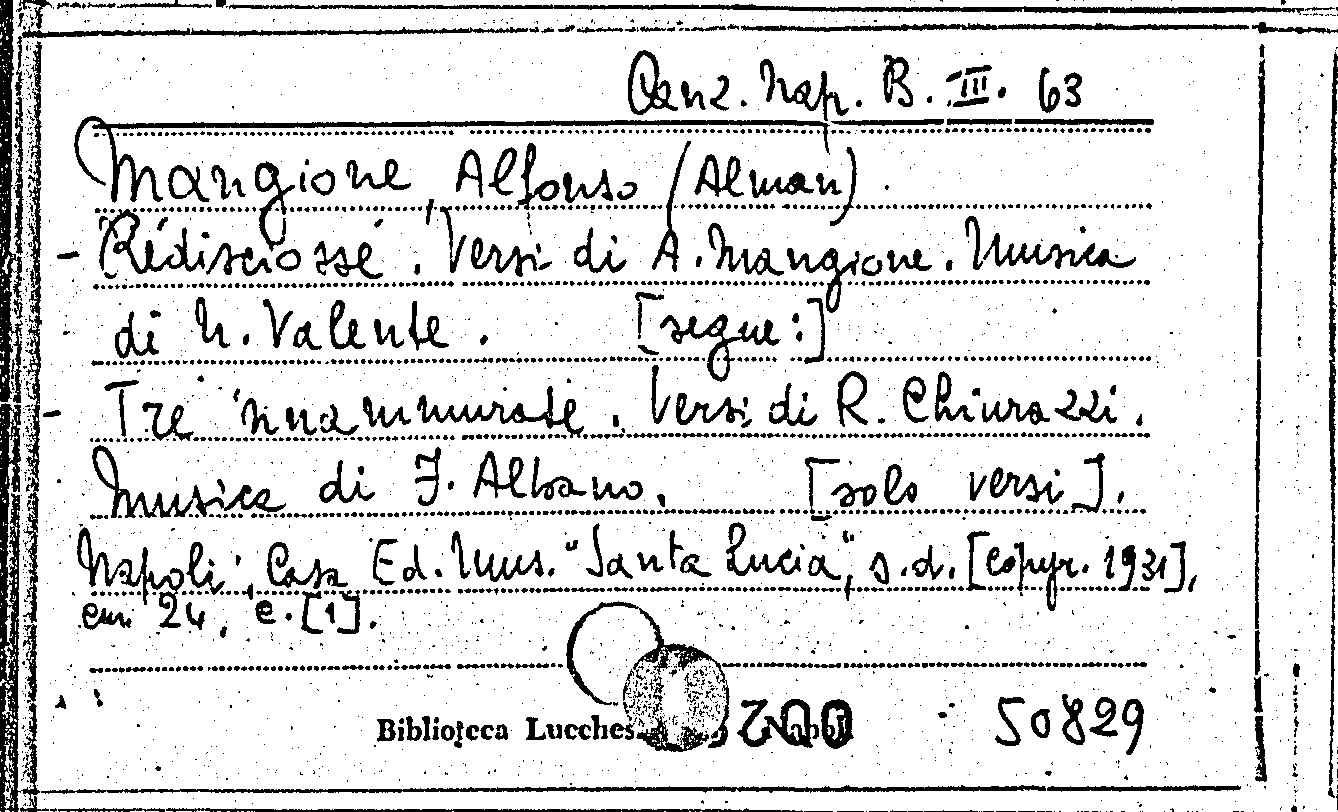 Canz. Nap. B. III. 63
Mangione, Alfonso (Alman).
- Rèdisciossé. Versi di A. Mangione. Musica
di N. Valente. [segue:]
- Tre 'nnammurate. Versi di R. Chiurazzi.
Musica di F. Albano. [solo versi].
Napoli, Casa Ed. Mus. "Santa Lucia", s.d. [Copyr. 1931],
cm. 24, c. [1].
Biblioteca Lucches
50829